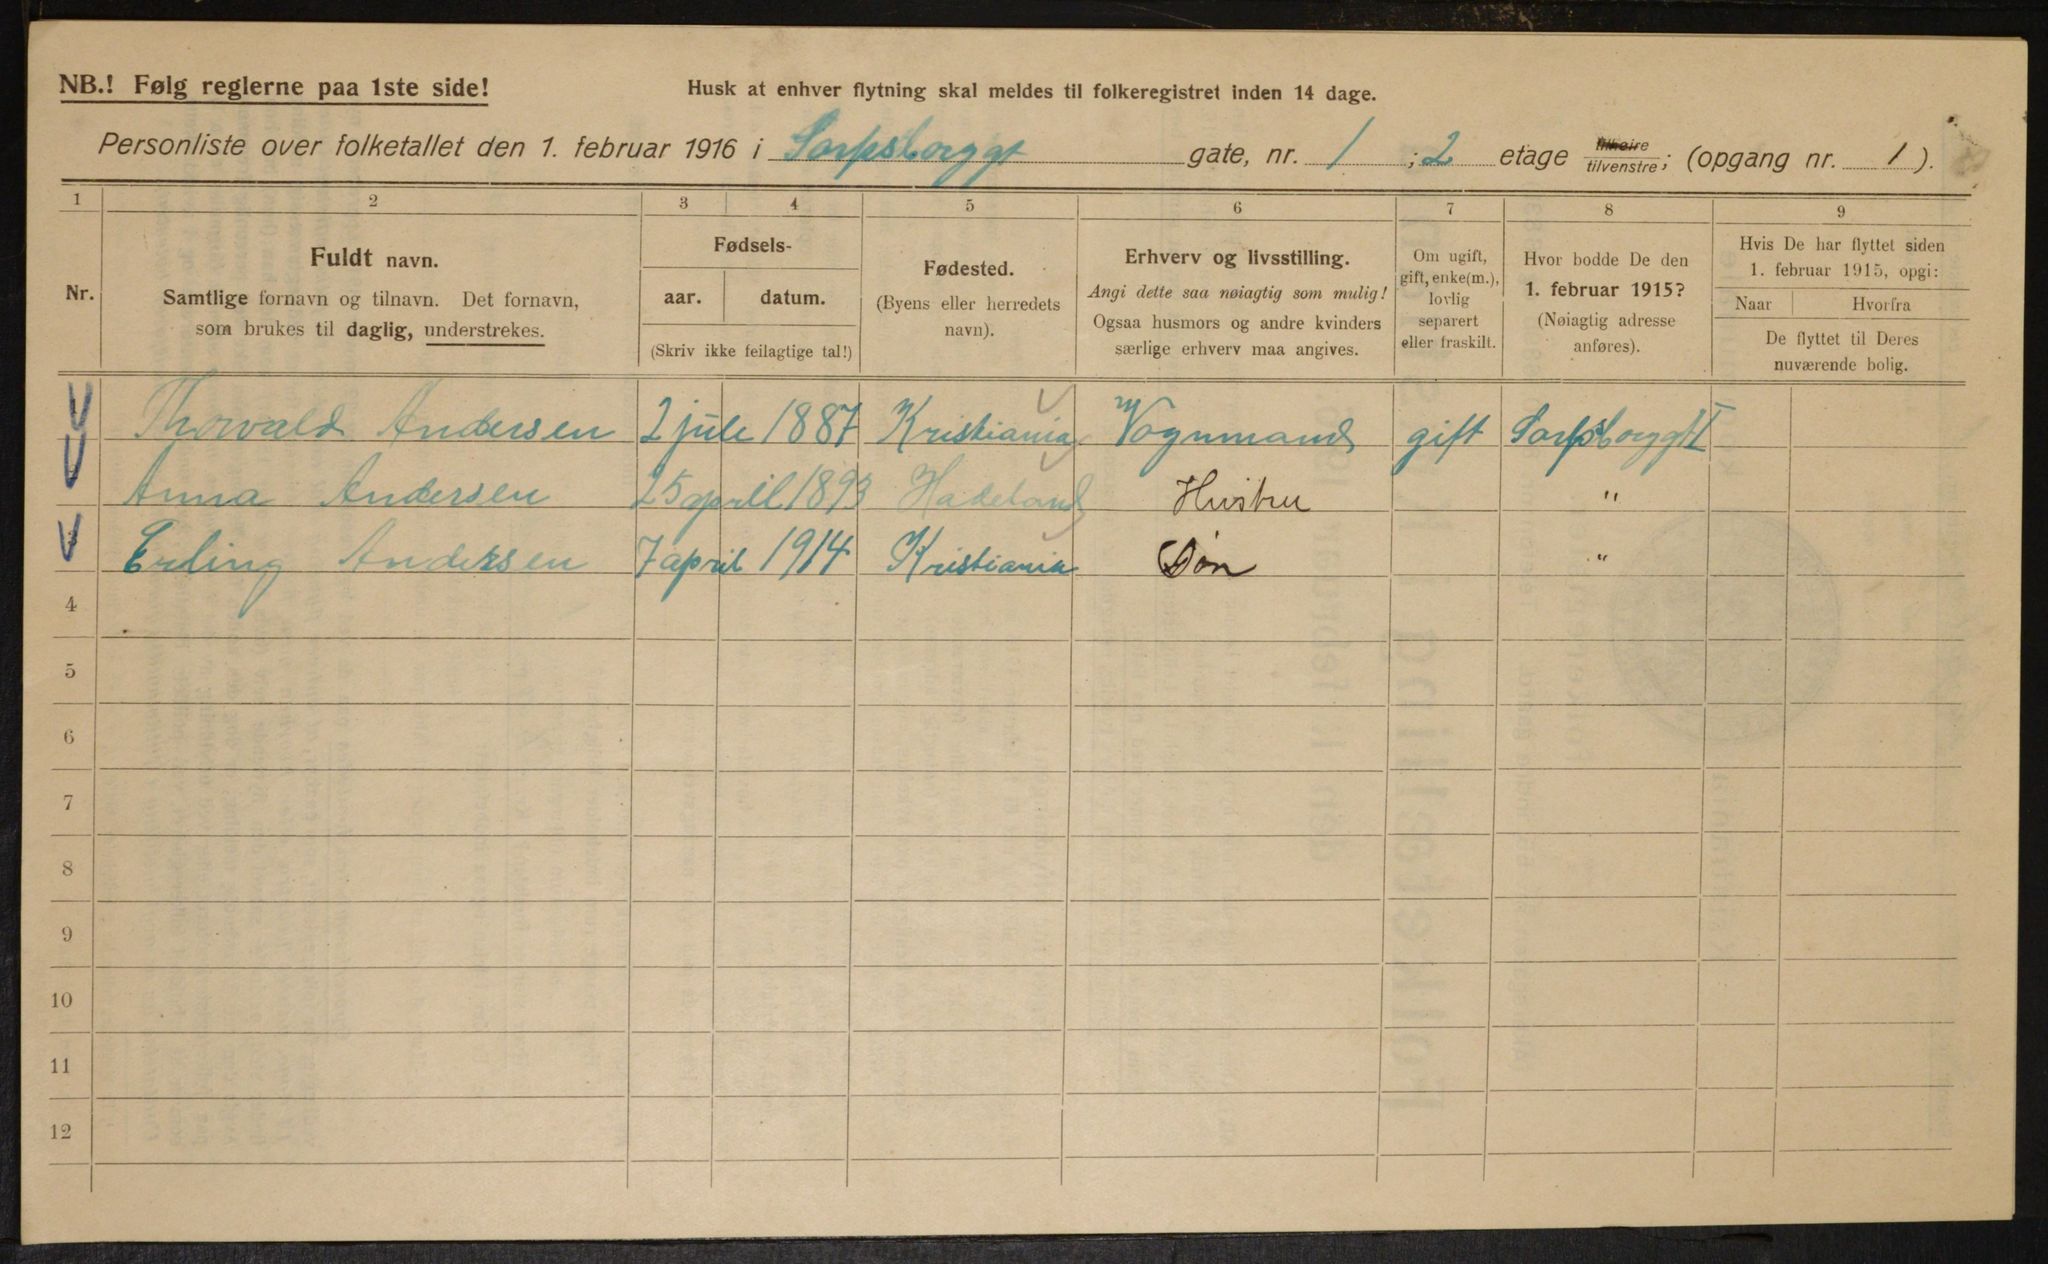 NB.! Følg reglerne paa 1ste side!
Husk at enhver flytning skal meldes til folkeregistret inden 14 dage.
Personliste over folketallet den 1. februar 1916 i Sarpsborggt gate, nr. 1 ; 2 etage tilhøire/tilvenstre; (opgang nr. 1).
1 2 3 4 5 6 7 8 9
Nr.
Fuldt navn.
Samtlige fornavn og tilnavn. Det fornavn,
som brukes til daglig, understrekes.
Fødsels-
aar. datum.
(Skriv ikke feilagtige tal!)
Fødested.
(Byens eller herredets
navn).
Erhverv og livsstilling.
Angi dette saa nøiagtig som mulig!
Ogsaa husmors og andre kvinders
særlige erhverv maa angives.
Om ugift,
gift, enke(m.),
lovlig
separert
eller fraskilt.
Hvor bodde De den
1. februar 1915?
(Nøiagtig adresse
anføres).
Hvis De har flyttet siden
1. februar 1915, opgi:
Naar Hvorfra
De flyttet til Deres
nuværende bolig.
Thorvald Andersen 2 juli 1887 Kristiania Vognmand gift Sarpsborggt I
Anna Andersen 25 april 1893 Hadeland Hustru "
3 Erling Andersen 7 april 1914 Kristiania Søn "
4
5
6
7
8
9
10
11
12